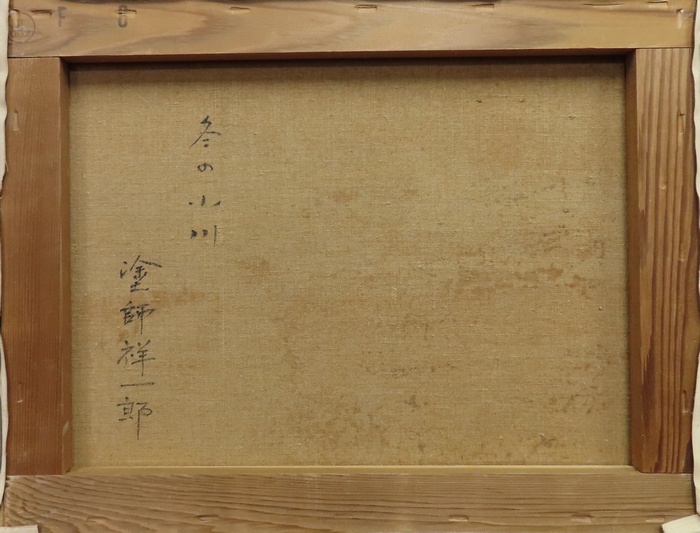 F 6
冬の小川
塗師祥一郎